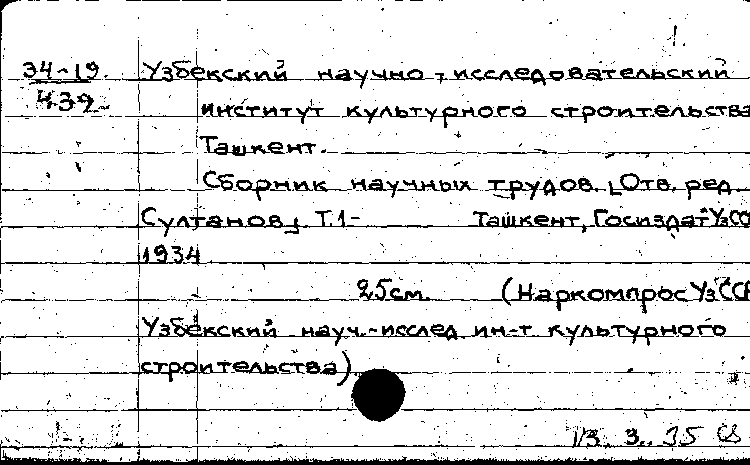 1.
34-19. Узбекский научно-исследовательский
439 институт культурного строительства
Ташкент.
Сборник научных трудов. [Отв. ред.
Султанов] Т.1- Ташкент, Госиздат УзСС
1934
25см. (Наркомпрос УзССР
Узбекский науч.-исслед. ин-т культурного
строительства)
1/3. 3. 35